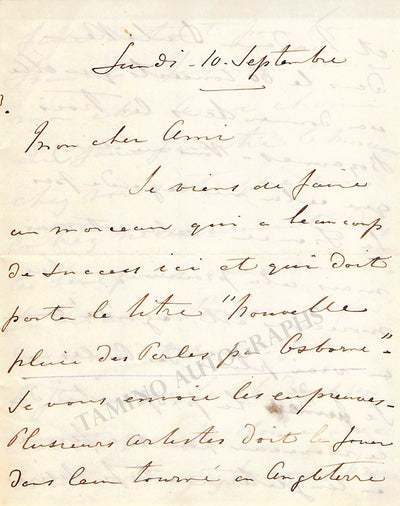 Lundi - 10 Septembre
Mon cher Ami
Je viens de faire
un morceau qui a beaucoup
de success ici et qui doit
porter le titre "Nouvelle
pluie des Perles par Osborne" -
Je vous envoie les epreuves -
Plusieurs artistes doit le jouer
dans leur tourné en Angleterre
TAMINO AUTOGRAPHS